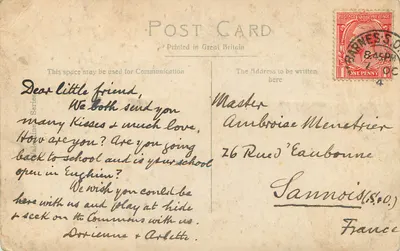 POST CARD
Printed in Great Britain
This space may be used for Communication
The Address to be written
here
BARNES. S.O.
8
OC
4
ONE PENNY
Series
Dear little friend,
We both send you
many Kisses & much love.
How are you? Are you going
back to school and is your school
open in Enghien?
We wish you could be
here with us and play at hide
& seek on the Commons with us.
Dorienne & Arlette.
Master
Ambroise Menetrier
76 Rue d'Eaubonne
Sannois (S.&O.)
France